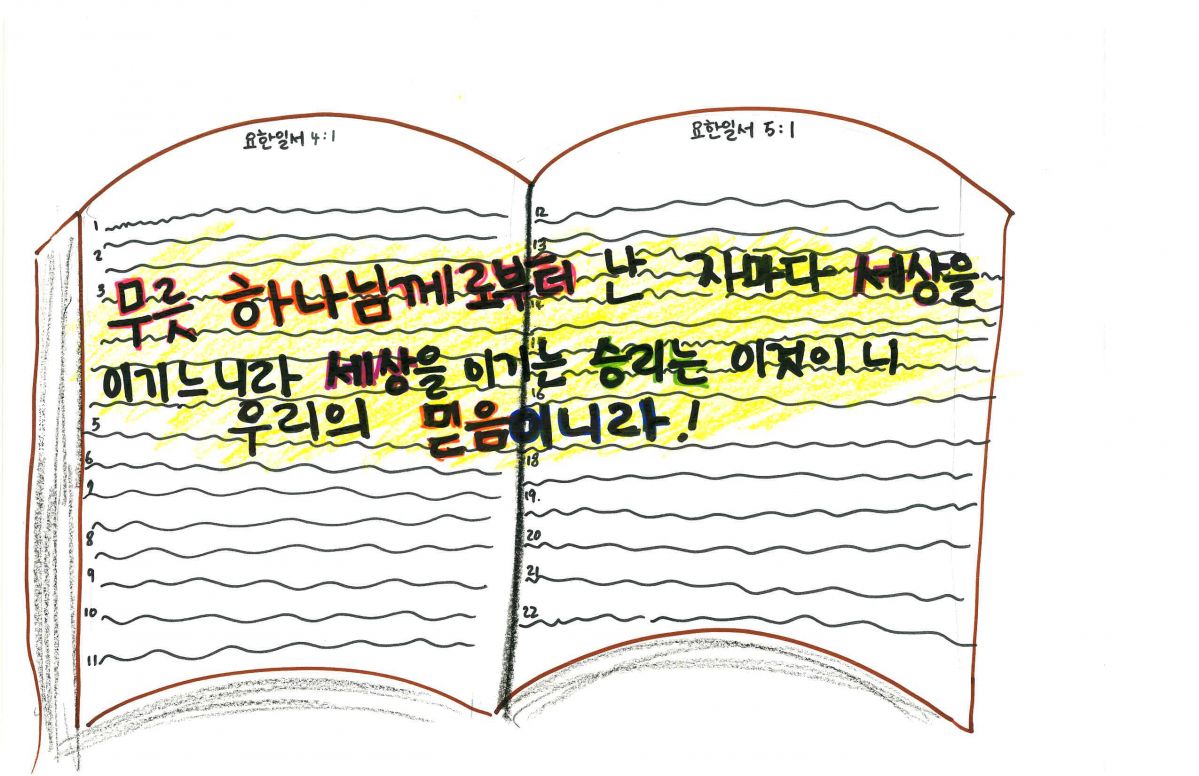 요한일서 4:1
요한일서 5:1
무릇 하나님께로부터 난 자마다 세상을
이기느니라 세상을 이기는 승리는 이것이니
우리의 믿음이니라!
1
2
3
5
6
7
8
9
10
11
12
13
14
16
18
19.
20
21
22